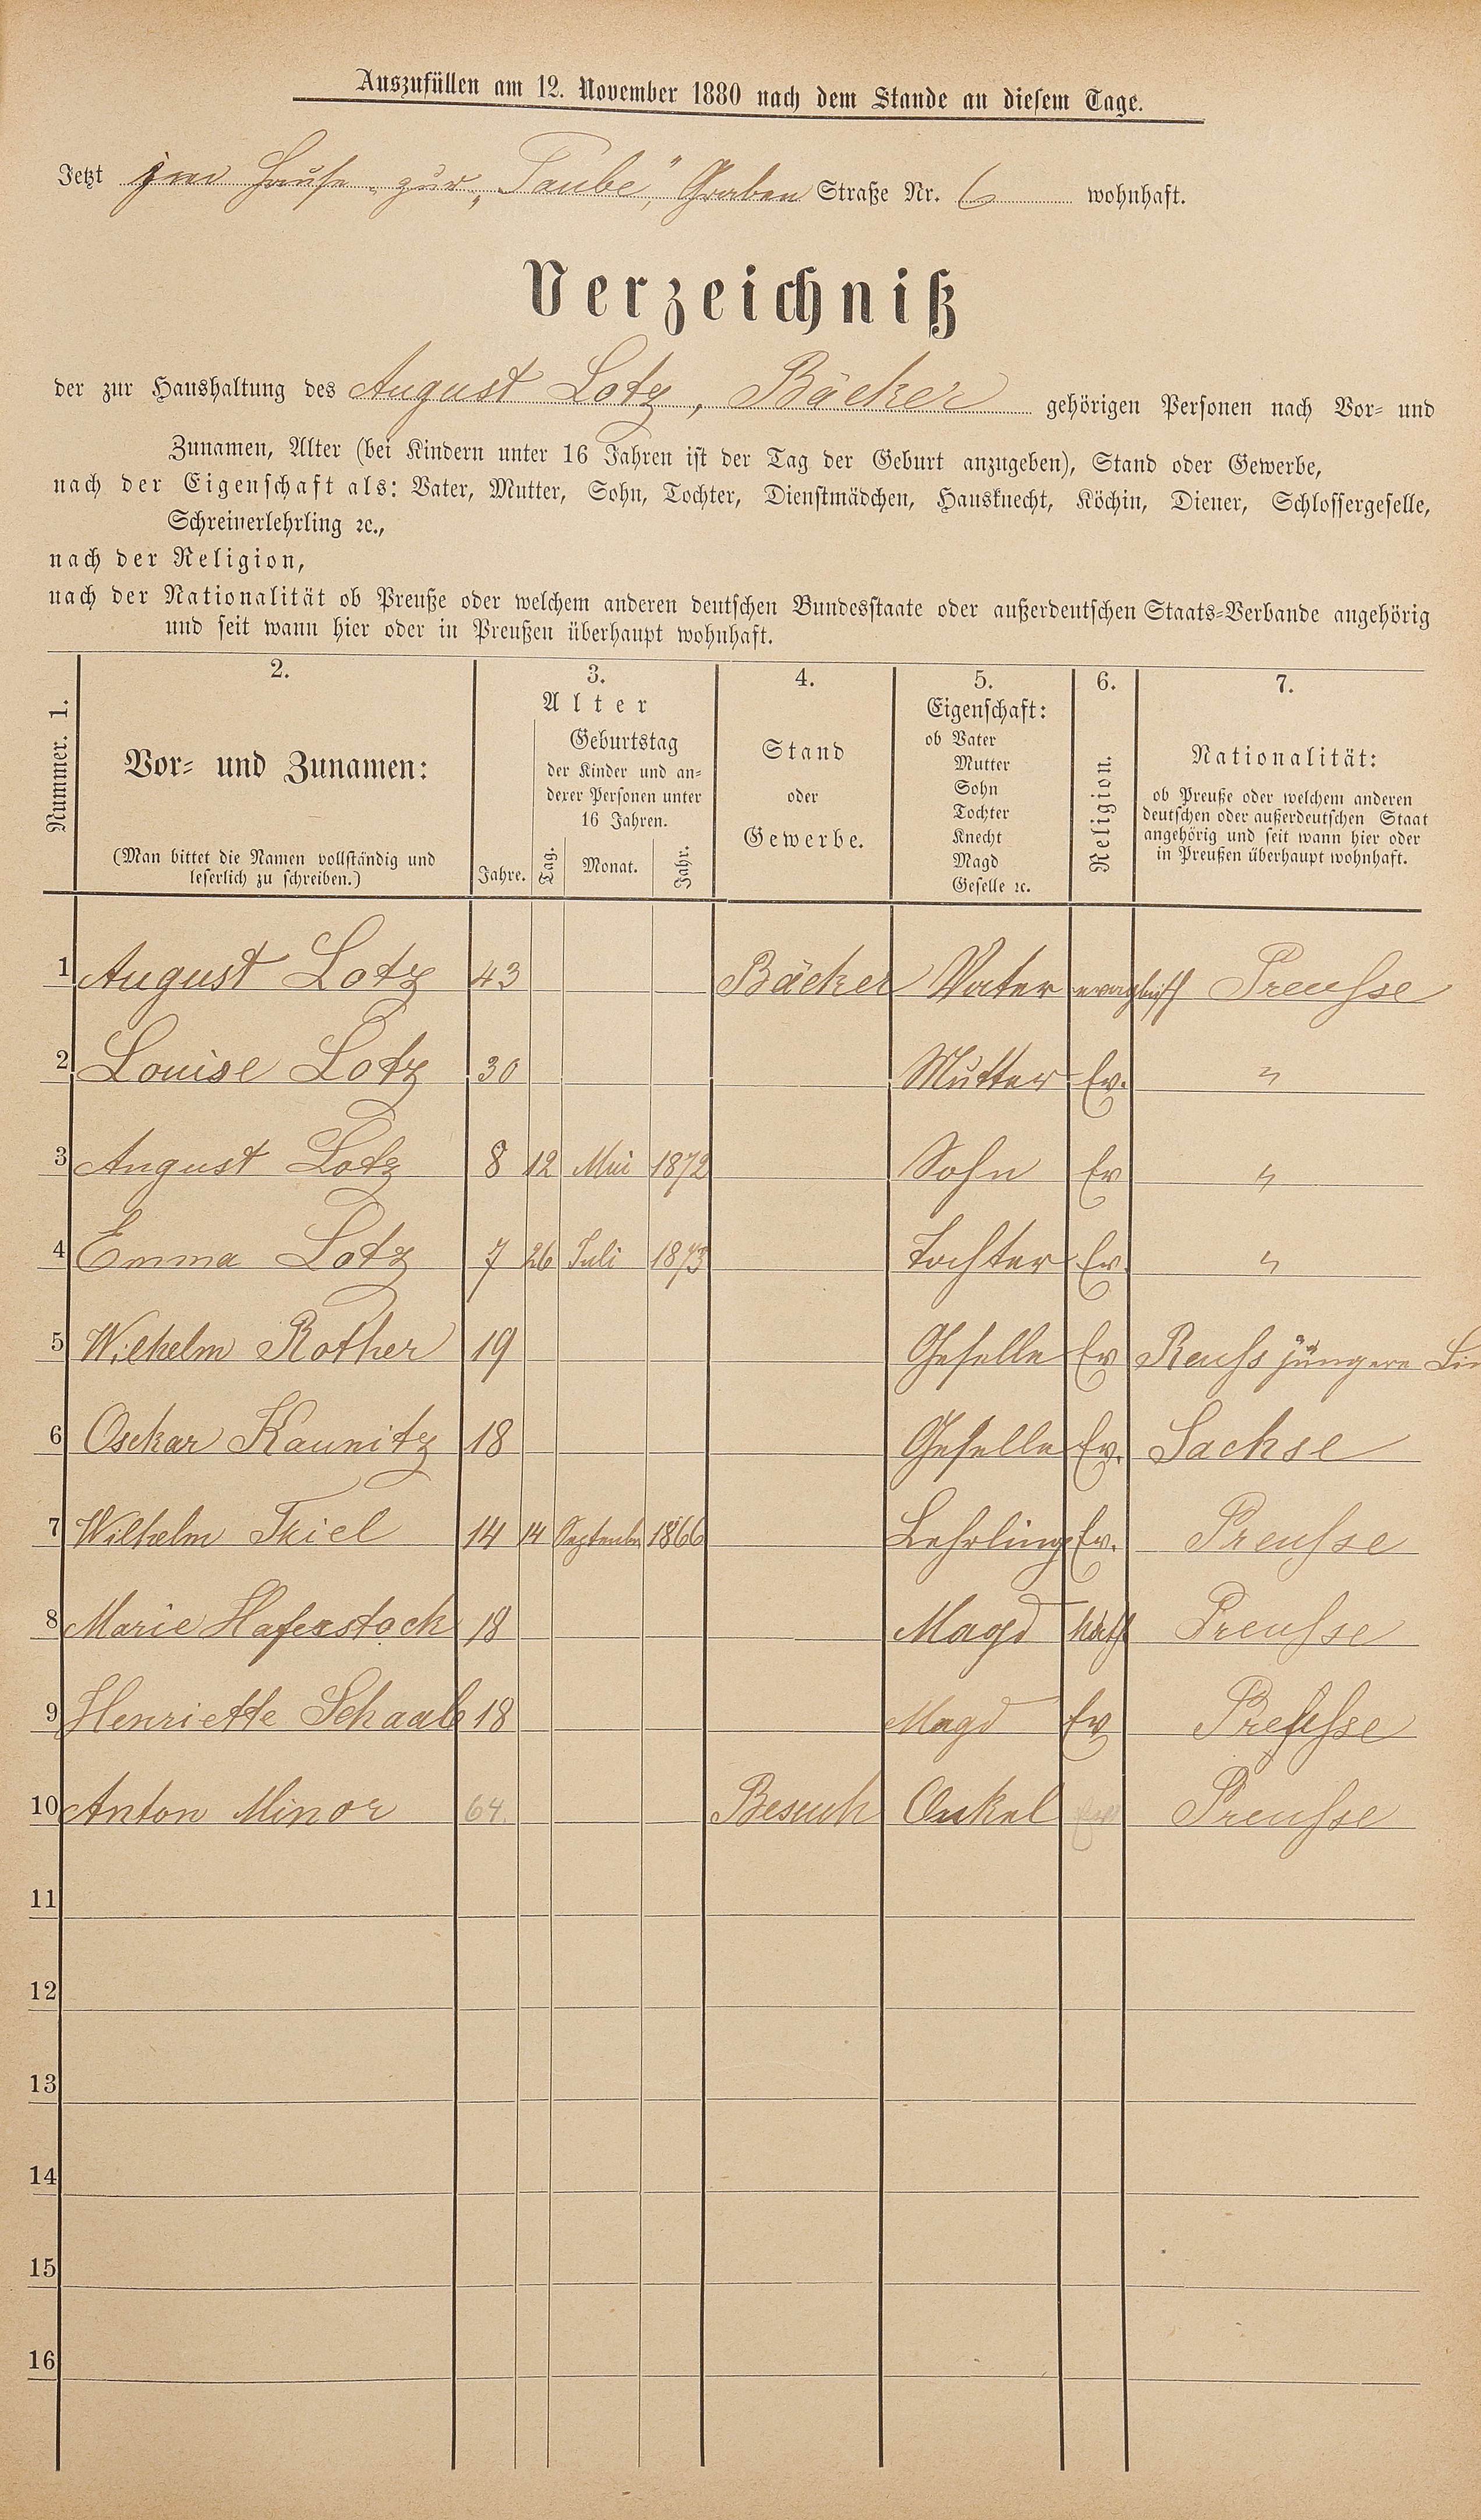 Auszufüllen am 12. November 1880 nach dem Stande an diesem Tage.
Jetzt im Hause zur „Taube", Graben Straße Nr. 6 wohnhaft.
Verzeichniß
der zur Haushaltung des August Lotz, Bäcker gehörigen Personen nach Vor- und
Zunamen, Alter (bei Kindern unter 16 Jahren ist der Tag der Geburt anzugeben), Stand oder Gewerbe,
nach der Eigenschaft als: Vater, Mutter, Sohn, Tochter, Dienstmädchen, Hausknecht, Köchin, Diener, Schlossergeselle,
Schreinerlehrling ꝛc.,
nach der Religion,
nach der Nationalität ob Preuße oder welchem anderen deutschen Bundesstaate oder außerdeutschen Staats-Verbande angehörig
und seit wann hier oder in Preußen überhaupt wohnhaft.
Nummer. 1.
2.
Vor- und Zunamen:
(Man bittet die Namen vollständig und
leserlich zu schreiben.)
3.
Alter
Jahre.
Geburtstag
der Kinder und an-
derer Personen unter
16 Jahren.
Tag. Monat. Jahr.
4.
Stand
oder
Gewerbe.
5.
Eigenschaft:
ob Vater
Mutter
Sohn
Tochter
Knecht
Magd
Geselle ꝛc.
6.
Religion.
7.
Nationalität:
ob Preuße oder welchem anderen
deutschen oder außerdeutschen Staat
angehörig und seit wann hier oder
in Preußen überhaupt wohnhaft.
1 August Lotz 43 Bäcker Vater evanglisch Preusse
2 Louise Lotz 30 Mutter Ev. "
3 August Lotz 8 12 Mai 1872 Sohn Ev "
4 Emma Lotz 7 26 Juli 1873 Tochter Ev. "
5 Wilhelm Rother 19 Geselle Ev Reuss jüngere
6 Osckar Kaunitz 18 Geselle Ev. Sachse
7 Wilhelm Thiel 14 14 September 1866 Lehrling Ev. Preusse
8 Marie Haferstock 18 Magd Kath Preusse
9 Henriette Schaab 18 Magd Ev Preusse
10 Anton Minor 64. Besuch Onkel Preusse
11
12
13
14
15
16